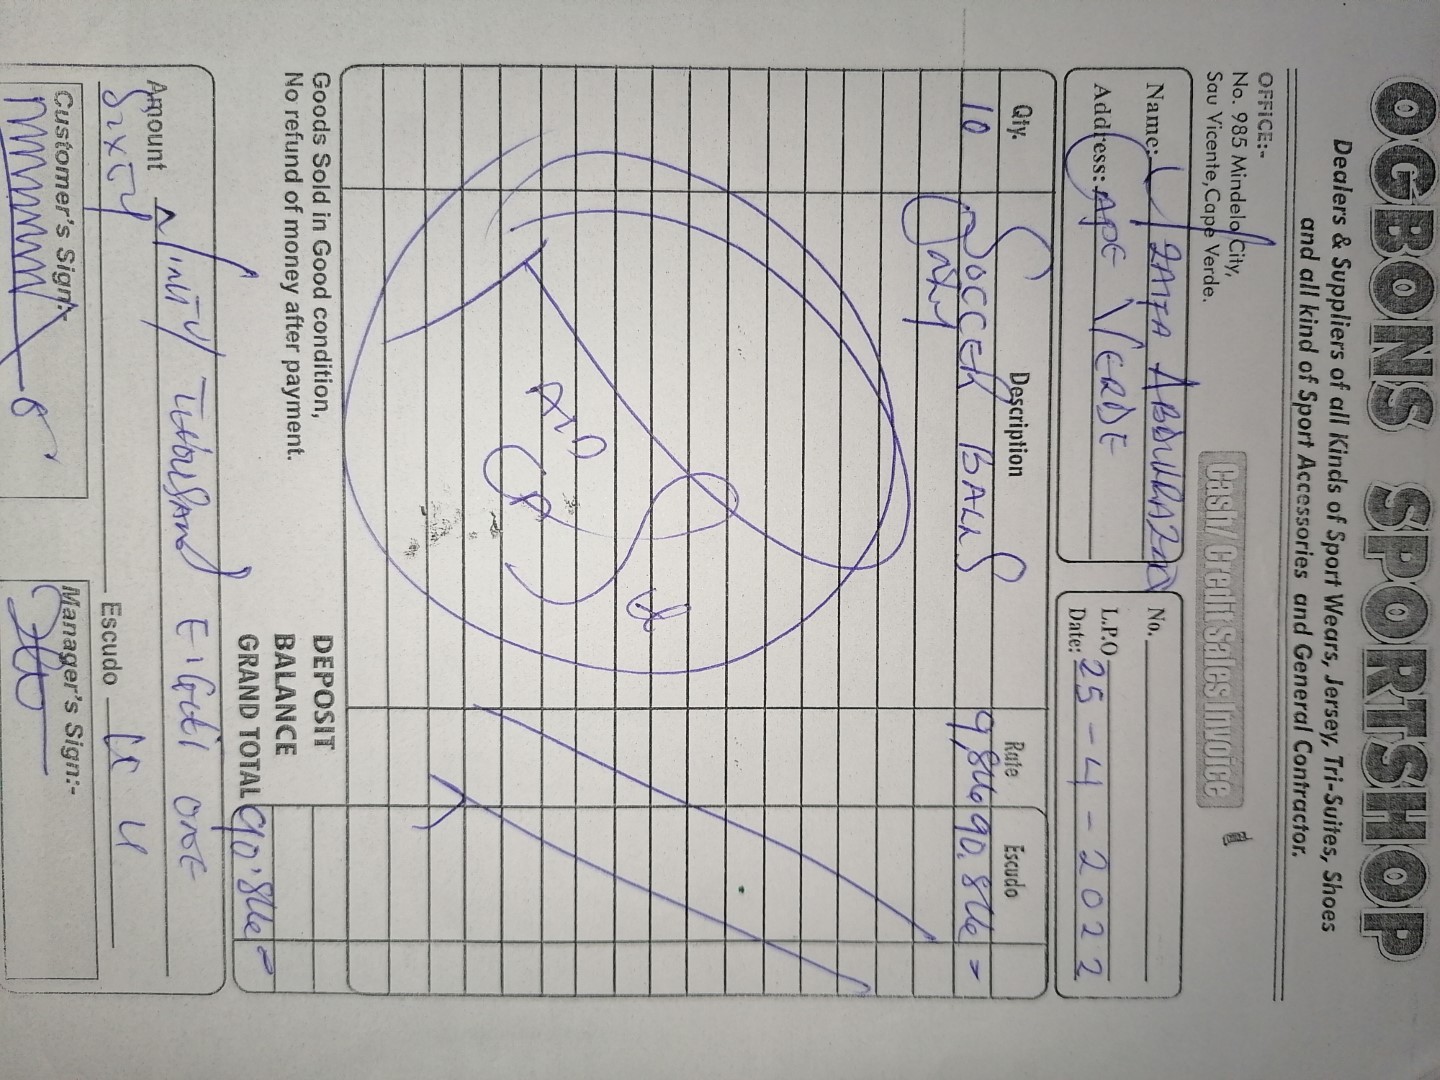 OGBONS SPORTSHOP
Dealers & Suppliers of all Kinds of Sport Wears, Jersey, Tri-Suites, Shoes
and all kind of Sport Accessories and General Contractor.
OFFICE:-
No. 985 Mindelo City,
Sau Vicente, Cape Verde.
Cash/ Credit Sales Invoice
Name:
Address: CAPE VERDE
No.
L.P.O
Date: 25-4-2022
Qty. Description Rate Escudo
10 SOCCER BALLS
Only
Goods Sold in Good condition,
No refund of money after payment.
DEPOSIT
BALANCE
GRAND TOTAL
Amount Ninty Thousand Eight one
Sixty Escudo
Customer's Sign:-
Manager's Sign:-